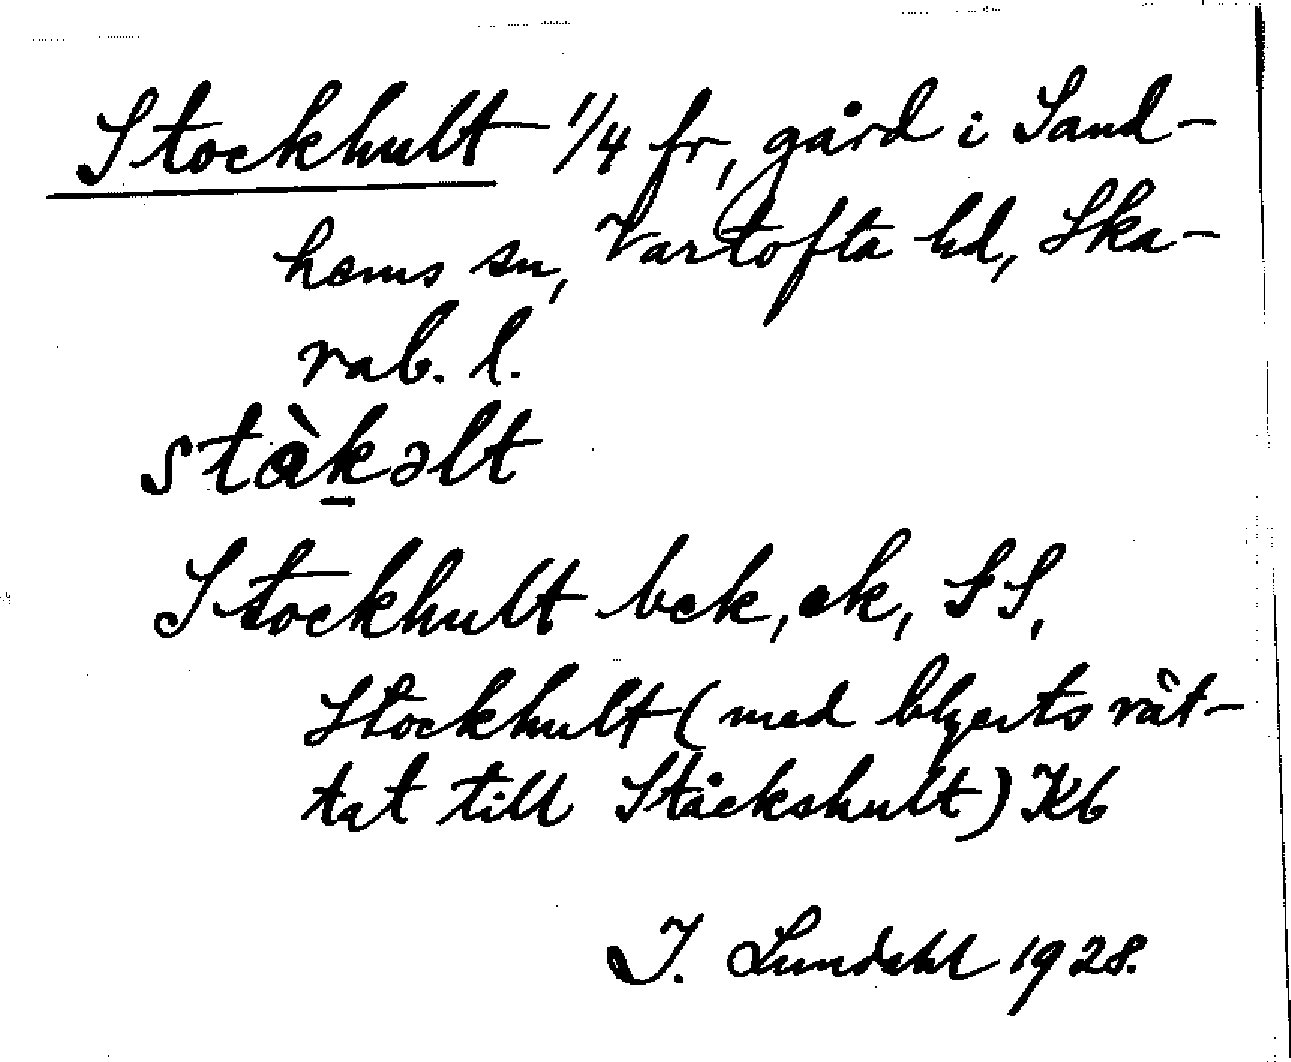 Stockhult 1/4 fr, gård i Sand-
hems sn, Vartofta hd, Ska-
rab. l.
stàk̠əlt
Stockhult bck, ek, SS,
Stockhult (med blyerts rät-
tat till Ståckshult) Kb
I. Lundahl 1928.